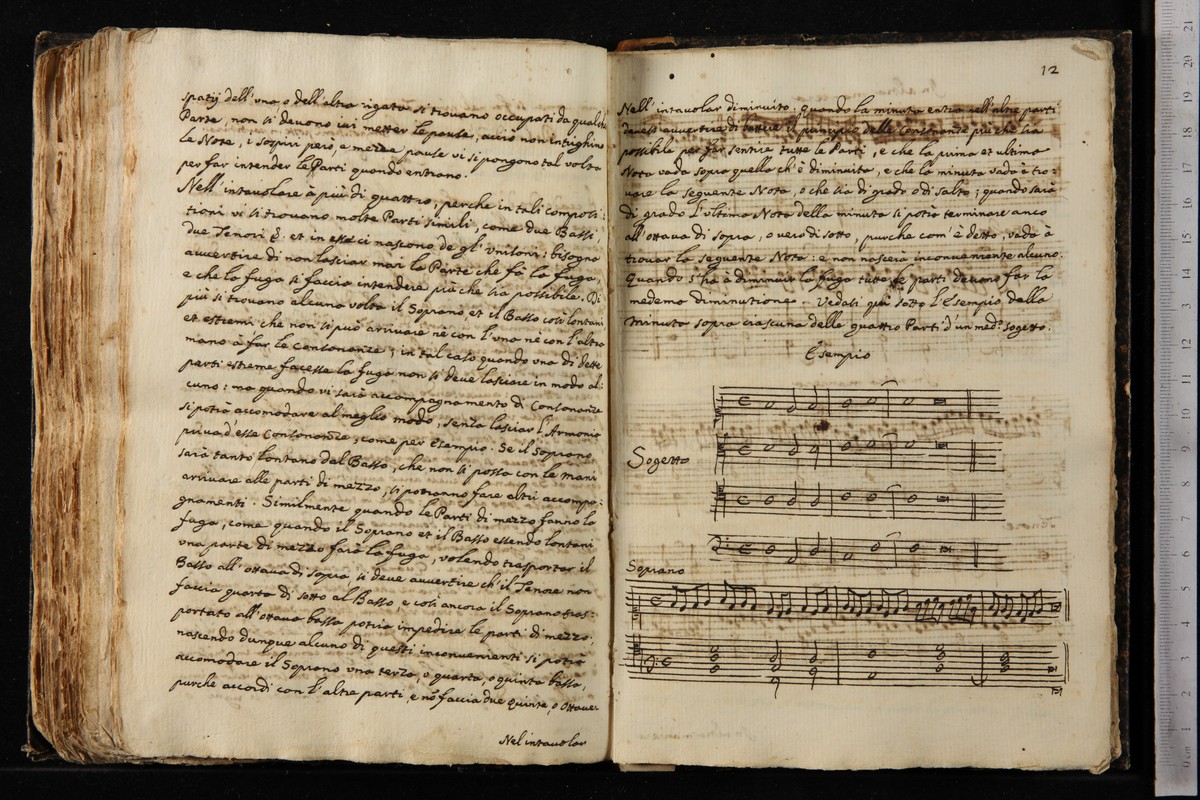 spatij dell'una, o dell'altra rigata si trovano occupati da qualche
Parte, non si devono ivi metter le pause, acciò non intrighino
le Note, i sospiri però, e mezze pause vi si pongono tal volta
per far intender le Parti quando entrano.
Nell'intavolare à più di quattro, perche in tali composi:
tioni vi si trovano molte Parti simili, come due Bassi,
due Tenori &. et in esse ci nascono de gl'Unisoni: bisogna
avvertire di non lasciar mai la Parte che fà la fuga,
e che la fuga si faccia intendere più che sia possibile. Di
più si trovano alcuna volta il Soprano, et il Basso così lontani
et estremi che non si può arrivare nè con l'una nè con l'altra
mano à far le Consonanze; in tal caso quando una di dette
parti estreme facesse la fuga non si deve lasciare in modo al:
cuno: ma quando vi sarà accompagnamento di Consonanze
si potrà accomodare al meglio modo, senza lasciar l'Armonia
priva d'esse Consonanze, come per Esempio. Se il Soprano
sarà tanto lontano dal Basso, che non si possa con le mani
arrivare alle parti di mezzo, si potranno fare altri accompa:
gnamenti. Similmente quando le Parti di mezzo fanno la
fuga, come quando il Soprano et il Basso essendo lontani
una parte di mezzo farà la fuga, volendo trasportar il
Basso all'ottava di sopra, si deve avvertire ch'il Tenore non
faccia quarta di sotto al Basso e così ancora il Soprano tras:
portato all'ottava bassa potria impedire le parti di mezzo;
nascendo dunque alcuno di questi inconvenienti si potrà
accomodare il Soprano una terza, o quarta, o quinta bassa,
purche accordi con l'altre parti, e nõ faccia due quinte, o Ottave.
Nel intavolar
12
Nell'intavolar diminuito. quando la minuta entra nell'altre parti
devesi avvertire di battere il principio delle Consonanze più che sia
possibile per far sentire tutte le Parti, e che la prima et ultima
Nota vada sopra quella ch'è diminuita, e che la minuta vada à tro:
vare la seguente Nota, o che sia di grado o di salto; quando sarà
di grado l'ultima Nota della minuta si potrà terminare anco
all'ottava di sopra, o vero di sotto, purche com'è detto, vada à
trovar la seguente Nota: e non nascerà inconveniente alcuno.
Quando s'hà à diminuir la fuga tutte le parti devono far la
medema diminutione. Vedasi quì sotto l'Esempio della
minuta sopra ciascuna delle quattro Parti d'un med.º sogetto.
Esempio
Sogetto
Soprano